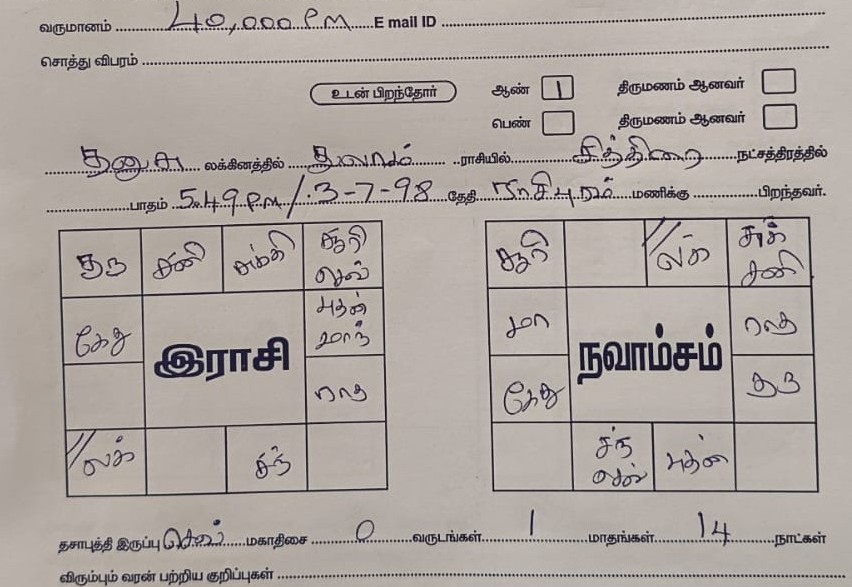 வருமானம் 40,000 PM E mail ID
சொத்து விபரம்
உடன் பிறந்தோர் ஆண் 1 திருமணம் ஆனவர்
பெண் திருமணம் ஆனவர்
தனுசு லக்கினத்தில் துலாம் ராசியில் சித்திரை நட்சத்திரத்தில்
பாதம் 5.49 P.M / 3-7-98 தேதி ராசிபுரம் மணிக்கு பிறந்தவர்.
குரு சனி சுக்கி சூரி செவ் சூரி லக் சுக் சனி
கேது புதன் மாந் மா ராகு
இராசி நவாம்சம்
ராகு கேது குரு
லக் சந் சந் செவ் புதன்
தசாபுத்தி இருப்பு செவ் மகாதிசை 0 வருடங்கள் 1 மாதங்கள் 14 நாட்கள்
விரும்பும் வரன் பற்றிய குறிப்புகள்